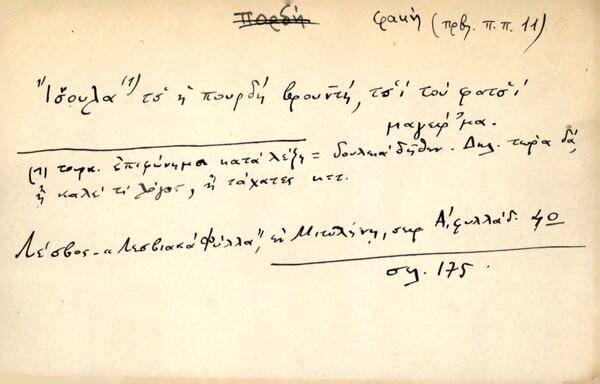 πορδή φακή (πρβ. π.π. 11)
"Ἴσουλα(1) τσ̌ ἡ πουρδή βρουντή, τσ̌ ὶ τοὺ φατσ̌ ὶ
μαγείρ'μα.
(1) τουρκ. ἐπιφώνημα κατά λέξη = δουλειά δῆθεν. Δηλ. τώρα δά,
ἢ καλέ τί λόγος, ἢ τάχατες κ.τ.
Λέσβος - «Λεσβιακά Φύλλα», ἐν Μιτυλήνῃ, φυλλάδ. 40
σελ. 175.